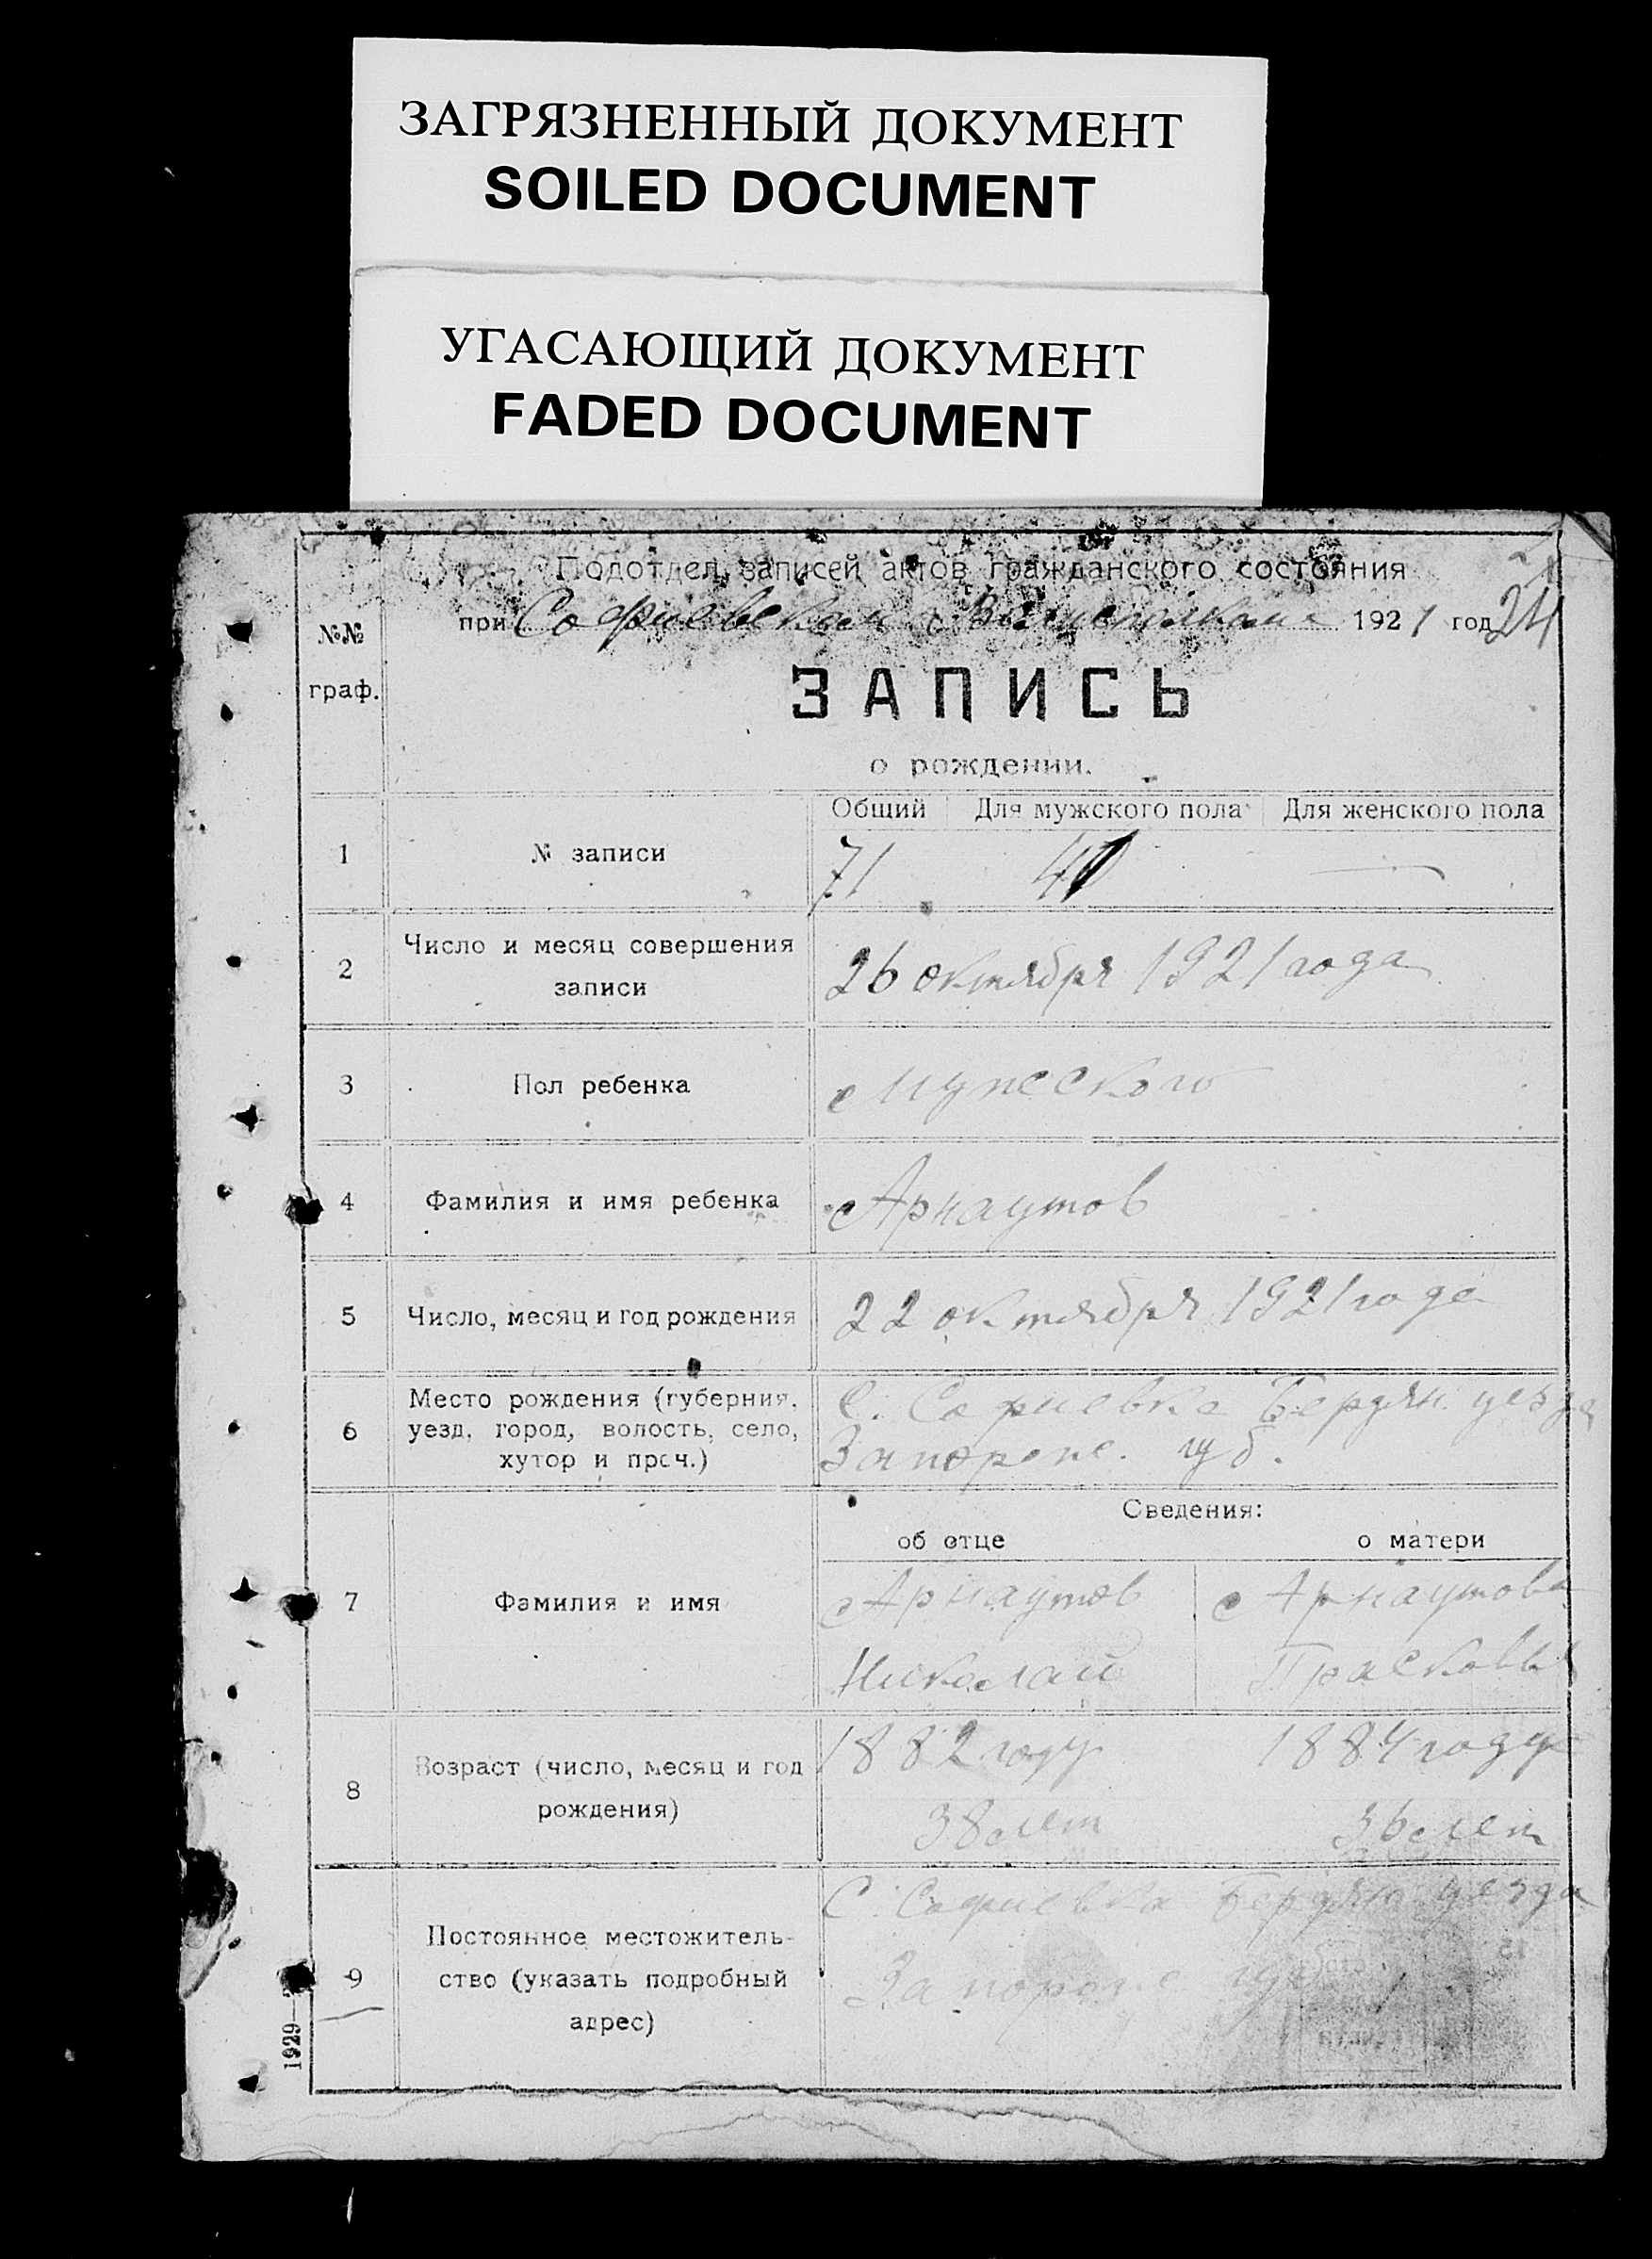 ЗАГРЯЗНЕННЫЙ ДОКУМЕНТ
SOILED DOCUMENT
УГАСАЮЩИЙ ДОКУМЕНТ
FADED DOCUMENT
Подотдел записей актов гражданского состояния
при Софиевском 1921 год 24
№№
граф.
ЗАПИСЬ
о рождении.
Общий Для мужского пола Для женского пола
1 № записи 71 40 —
2 Число и месяц совершения
записи
26 октября 1921 года
3 Пол ребенка Мужеского
4 Фамилия и имя ребенка Арнаутов
5 Число, месяц и год рождения 22 октября 1921 года
6 Место рождения (губерния,
уезд, город, волость, село,
хутор и проч.)
С. Софиевка Бердян. уезда
Запорож. губ.
Сведения:
об отце о матери
7 Фамилия и имя Арнаутов Арнаутова
Николай Прасковья
8 Возраст (число, месяц и год
рождения)
1882 году 1884 году
38 лет 36 лет
9 Постоянное местожитель-
ство (указать подробный
адрес)
С. Софиевка Бердян уезда
Запорож губ
1929